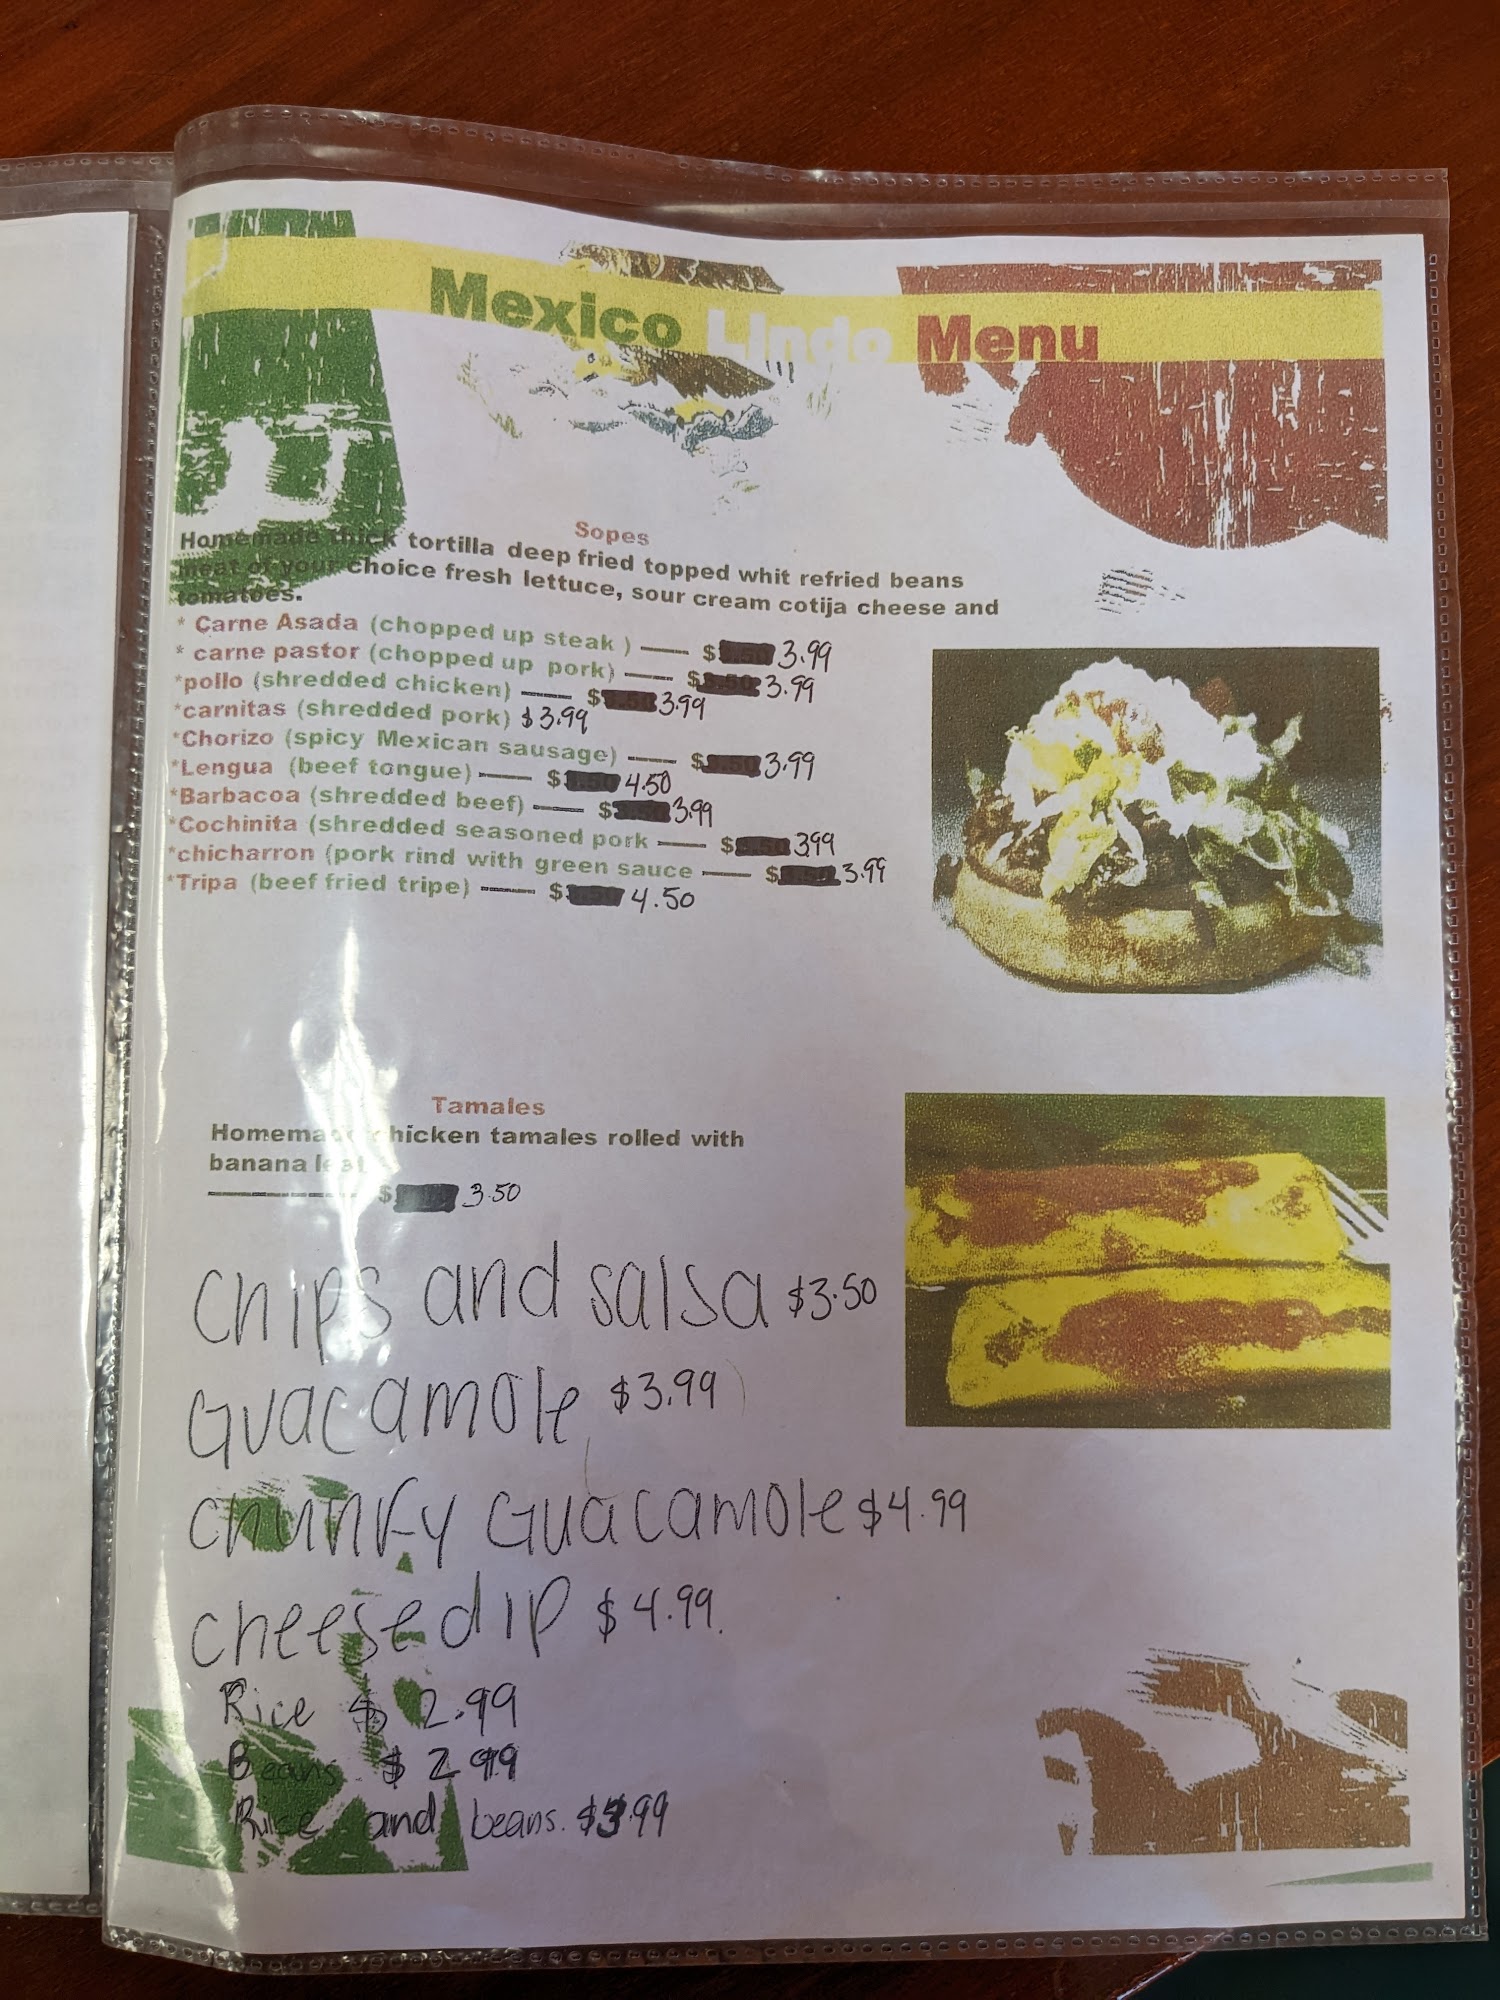 Mexico Lindo Menu
Sopes
Homemade thick tortilla deep fried topped whit refried beans
meat of your choice fresh lettuce, sour cream cotija cheese and
tomatoes.
* Carne Asada (chopped up steak ) —— $ 3.99
* carne pastor (chopped up pork) —— $ 3.99
*pollo (shredded chicken) —— $ 3.99
*carnitas (shredded pork) $3.99
*Chorizo (spicy Mexican sausage) —— $ 3.99
*Lengua (beef tongue) —— $ 4.50
*Barbacoa (shredded beef) —— $ 3.99
*Cochinita (shredded seasoned pork —— $ 3.99
*chicharron (pork rind with green sauce —— $ 3.99
*Tripa (beef fried tripe) —— $ 4.50
Tamales
Homemade chicken tamales rolled with
banana leaf
—————— $ 3.50
Chips and salsa $3.50
Guacamole $3.99
Chunky Guacamole $4.99
cheese dip $4.99.
Rice $ 2.99
Beans $ 2.99
Rice and beans.